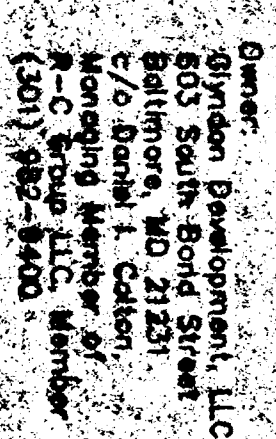 Owner:
Glyndon Development, LLC
603 South Bond Street
Baltimore, MD 21231
c/o Daniel I. Colton,
Managing Member of
R-C Group LLC, Member
(301) 982-8400